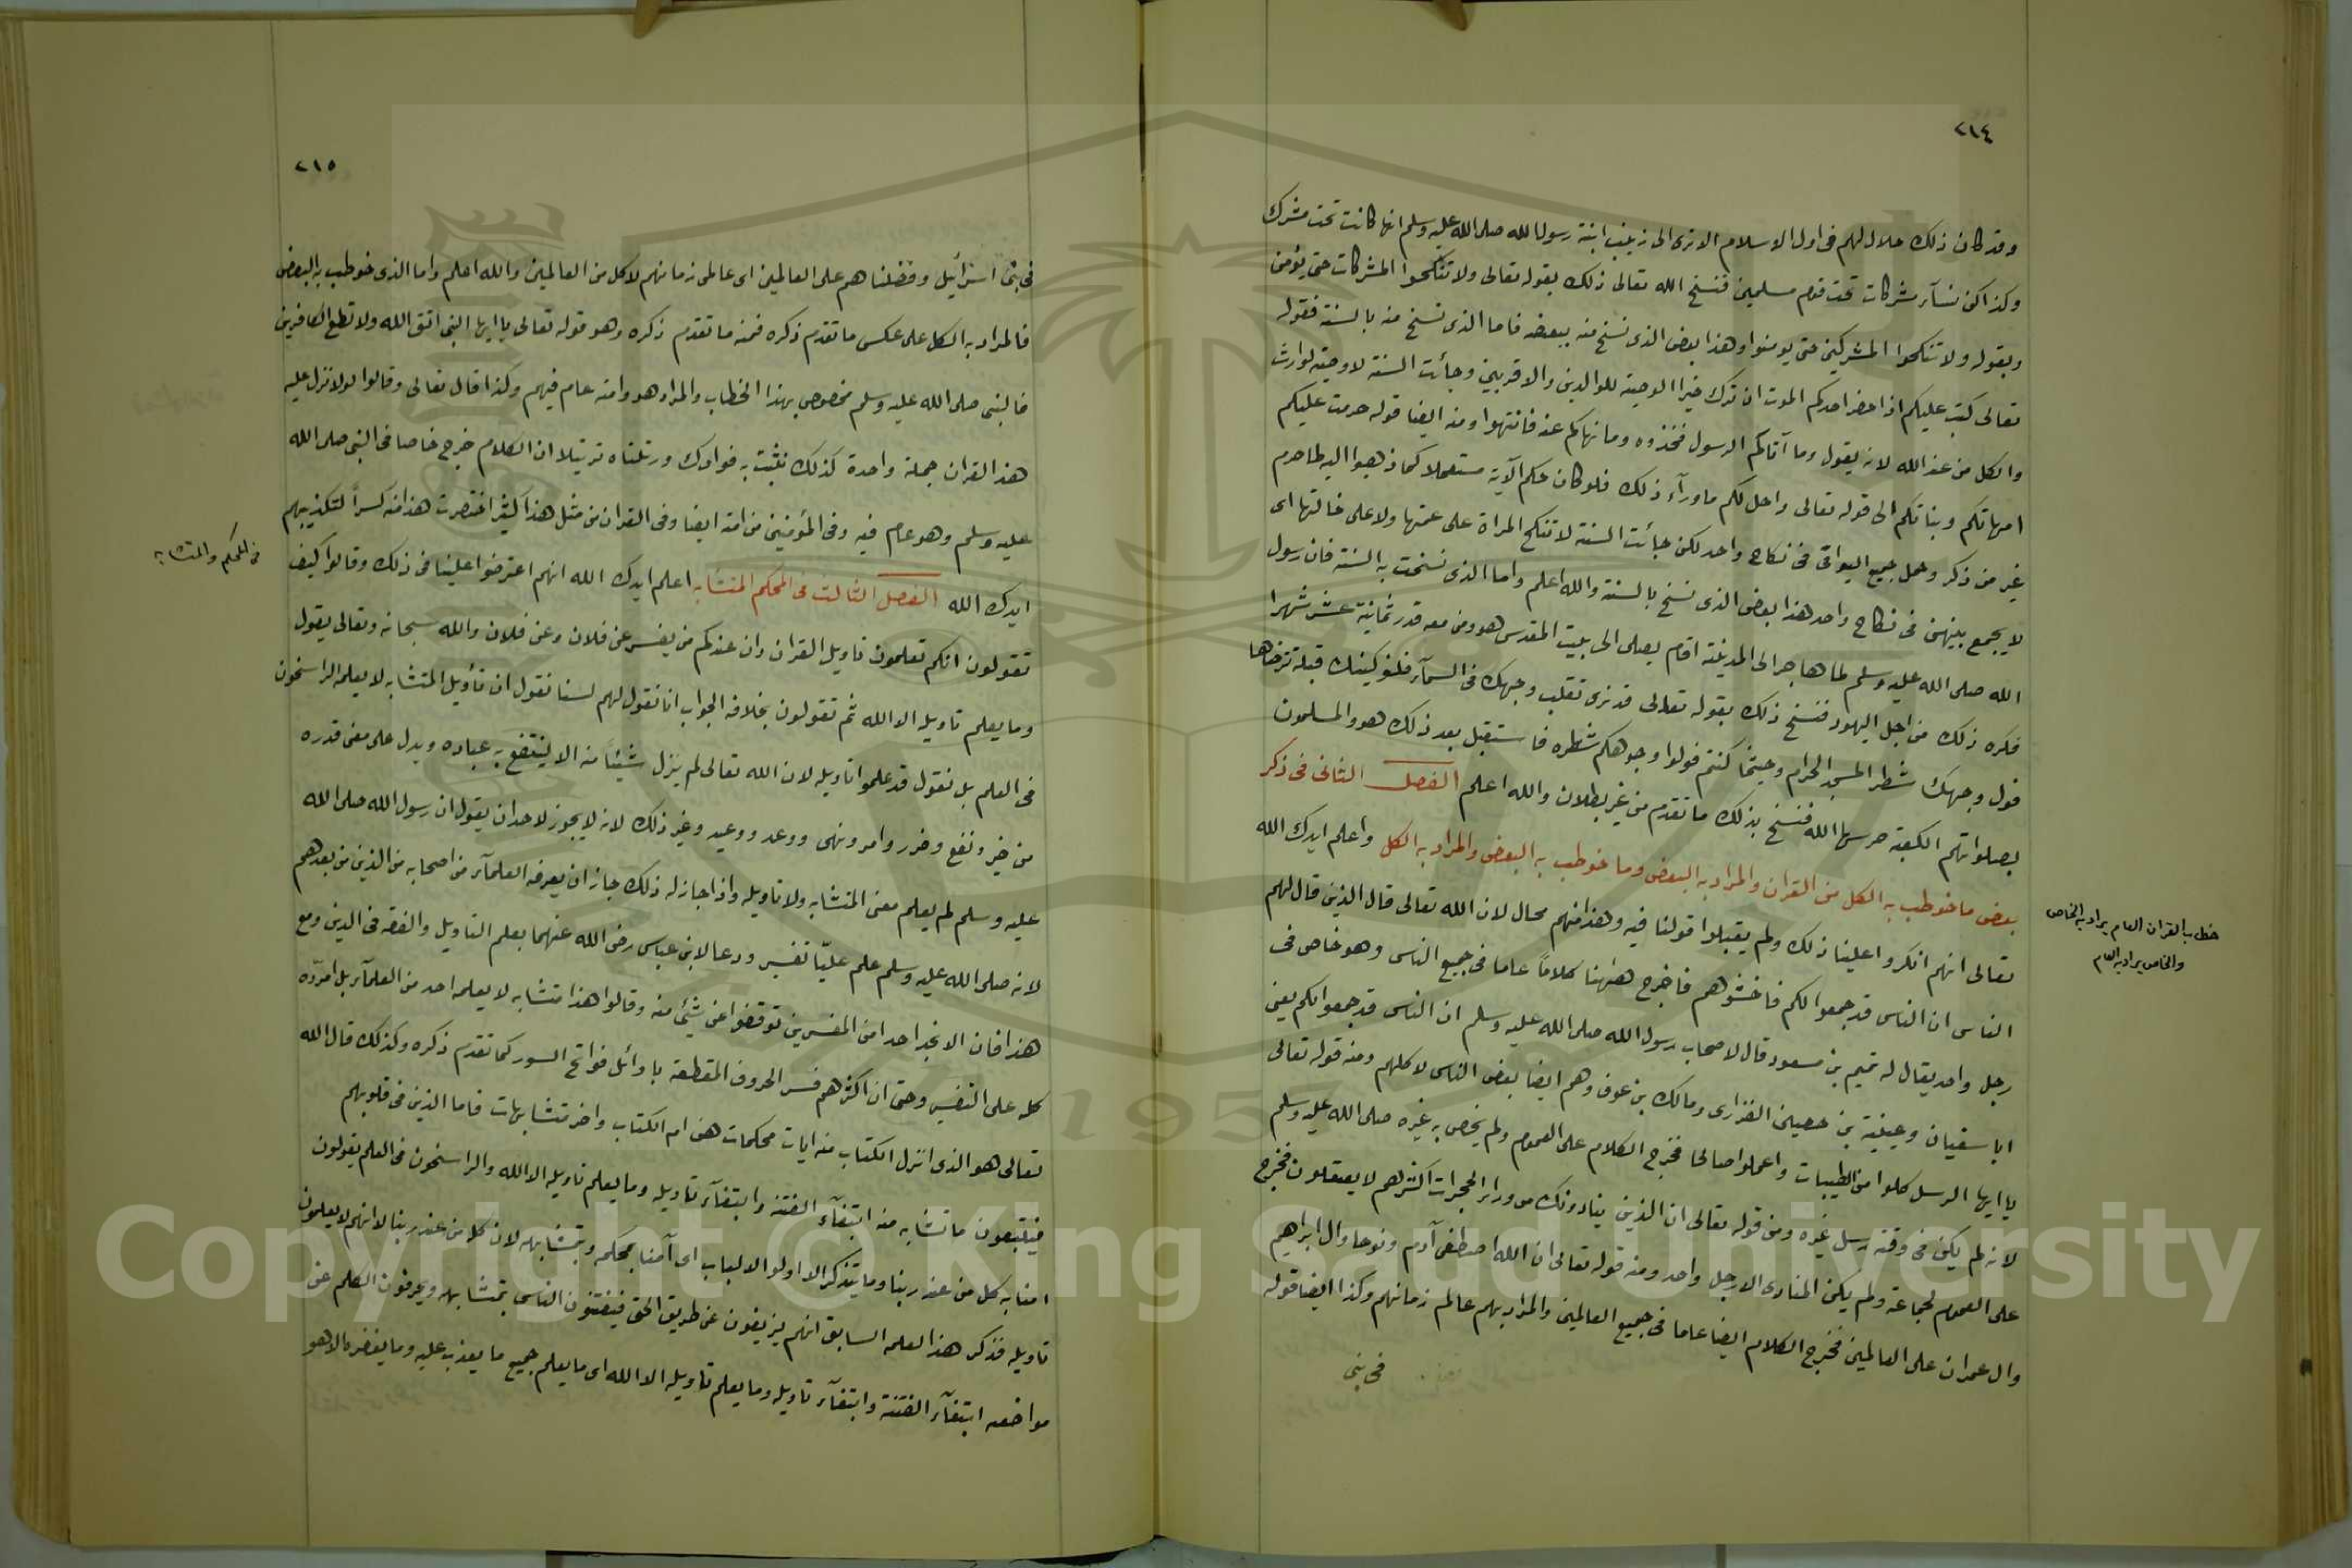 ٢١٤
وقد كان ذلك حلال لهم فى اول الاسلام الا ترى الى زينب ابنة رسول الله صلى الله عليه وسلم انها كانت تحت مشرك
وكذا كن نسآء مشركات تحت قوم مسلمين فنسخ الله تعالى ذلك بقوله تعالى ولا تنكحوا المشركات حتى يؤمن
وبقوله ولا تنكحوا المشركين حتى يومنوا وهذا بعض الذى نسخ منه ببعضه فاما الذى نسخ منه بالسنة فقوله
تعالى كتب عليكم اذا حضر احدكم الموت ان ترك خيرا الوصية للوالدين والاقربين وجائت السنة لا وصية لوارث
والكل من عند الله لانه يقول وما آتاكم الرسول فخذوه وما نهاكم عنه فانتهوا ومنه ايضا قوله حرمت عليكم
امهاتكم وبناتكم الى قوله تعالى واحل لكم ما ورآء ذلك فلو كان حكم الآية مستعملا كما ذهبوا اليه لما حرم
غير من ذكر وحل جميع البواقى فى نكاح واحد لكن جائت السنة لا تنكح المراة على عمتها ولا على خالتها اى
لا يجمع بينهن فى نكاح واحد هذا بعض الذى نسخ بالسنة والله اعلم واما الذى نسخت به السنة فان رسول
الله صلى الله عليه وسلم لما هاجر الى المدينة اقام يصلى الى بيت المقدس هو ومن معه قدر ثمانية عشر شهرا
فكره ذلك من اجل اليهود فنسخ ذلك بقوله تعالى قد نرى تقلب وجهك فى السمآء فلنولينك قبلة ترضاها
فول وجهك شطر المسجد الحرام وحيثما كنتم فولوا وجوهكم شطره فاستقبل بعد ذلك هو والمسلمون
بصلواتهم الكعبة حرسها الله فنسخ بذلك ما تقدم من غير بطلان والله اعلم الفصل الثانى فى ذكر
بعض ما خوطب به الكل من القران والمراد به البعض وما خوطب به البعض والمراد به الكل واعلم ايدك الله
خطاب القران العام يراد به الخاص
والخاص يراد به العام
تعالى انهم انكروا علينا ذلك ولم يقبلوا قولنا فيه وهذا منهم محال لان الله تعالى قال الذين قال لهم
الناس ان الناس قد جمعوا لكم فاخشوهم فاخرج ههنا كلاما عاما فى جميع الناس وهو خاص فى
رجل واحد يقال له نعيم بن مسعود قال لاصحاب رسول الله صلى الله عليه وسلم ان الناس قد جمعوا لكم يعنى
ابا سفيان وعيينة بن حصين الفزارى ومالك بن عوف وهم ايضا بعض الناس لا كلهم ومنه قوله تعالى
يا ايها الرسل كلوا من الطيبات واعملوا صالحا فخرج الكلام على العموم ولم يخص به غيره صلى الله عليه وسلم
لانه لم يكن فى وقته رسل غيره ومن قوله تعالى ان الذين ينادونك من وراء الحجرات اكثرهم لا يعقلون فخرج
على العموم لجماعة ولم يكن المنادى الا رجل واحد ومنه قوله تعالى ان الله اصطفى آدم ونوحا وال ابراهيم
وال عمران على العالمين فخرج الكلام ايضا عاما فى جميع العالمين والمراد بهم عالم زمانهم وكذا ايضا قوله
فى بنى
٢١٥
فى بنى اسرائيل وفضلناهم على العالمين اى عالمى زمانهم لا كل من العالمين والله اعلم واما الذى خوطب به البعض
فالمراد به الكل على عكس ما تقدم ذكره فمنه ما تقدم ذكره وهو قوله تعالى يا ايها النبى اتق الله ولا تطع الكافرين
فالنبى صلى الله عليه وسلم مخصوص بهذا الخطاب والمراد هو وامته عام فيهم وكذا قال تعالى وقالوا لولا نزل عليه
هذا القران جملة واحدة كذلك نثبت به فوادك ورتلناه ترتيلا ان الكلام خرج خاصا فى النبى صلى الله
عليه وسلم وهو عام فيه وفى المؤمنين من امته ايضا وفى القران من مثل هذا كثير اختصرت هذا منه كسرا لتكذيبهم
ايدك الله الفصل الثالث فى المحكم المتشابه اعلم ايدك الله انهم اعترضوا علينا فى ذلك وقالوا كيف
فى المحكم والمتشابه
تقولون انكم تعلمون تاويل القران وان عندكم من يفسر عن فلان وعن فلان والله سبحانه وتعالى يقول
وما يعلم تاويله الا الله ثم تقولون بخلافه الجواب انا نقول لهم لسنا نقول ان تأويل المتشابه لا يعلمه الراسخون
فى العلم بل نقول قد علموا تاويله لان الله تعالى لم ينزل شيئا منه الا لينتفع به عباده ويدل على معنى قدره
من خير ونفع وضرر وامر ونهى ووعد ووعيد وغير ذلك لانه لا يجوز لاحد ان يقول ان رسول الله صلى الله
عليه وسلم لم يعلم معنى المتشابه ولا تاويله واذا جاز له ذلك جاز ان يعرفه العلمآء من اصحابه من الذين من بعدهم
لانه صلى الله عليه وسلم علم عليّا تفسير ودعا لابن عباس رضى الله عنهما بعلم التاويل والفقه فى الدين ومع
هذا فان الا نجد احدا من المفسرين توقفوا عن شيئ منه وقالوا هذا متشابه لا يعلمه احد من العلمآء بل امرّوه
كله على التفسير وحتى ان اكثرهم فسر الحروف المقطعة باوائل فواتح السور كما تقدم ذكره وكذلك قال الله
تعالى هو الذى انزل الكتاب منه ايات محكمات هن ام الكتاب واخر متشابهات فاما الذين فى قلوبهم
فيتبعون ما تشابه منه ابتغآء الفتنة وابتغآء تاويله وما يعلم تاويله الا الله والراسخون فى العلم يقولون
امنا به كل من عند ربنا وما يتذكر الا اولوا الالباب اى آمنا بمحكمه وبمتشابهه لان كلا من عند ربنا لا انهم لا يعلمون
تاويله فذكر هذا لعلمه السابق انهم يزيغون عن طريق الحق فيفتنون الناس بمتشابهه ويحرفون الكلم عن
مواضعه ابتغآء الفتنة وابتغآء تاويله وما يعلم تاويله الا الله اى ما يعلم جميع ما يعذب عليه وما يغفره الا هو
Copyright © King Saud University
195